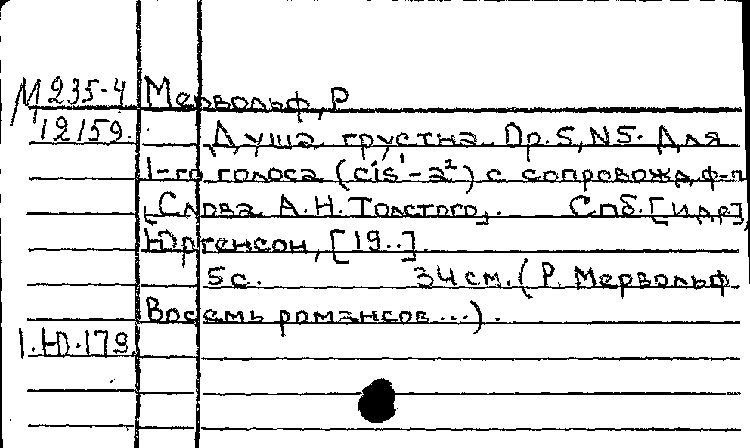 М 235-4 Мервольф, Р
12159. Душа грустна. Op. 5, N 5. Для
1-го голоса (cis¹-a²) с сопровожд. ф-п
[Слова А.Н. Толстого]. Спб. [и др.],
Юргенсон, [19..].
5 с. 34 см. (Р. Мервольф
Восемь романсов...).
1.Ю.179.